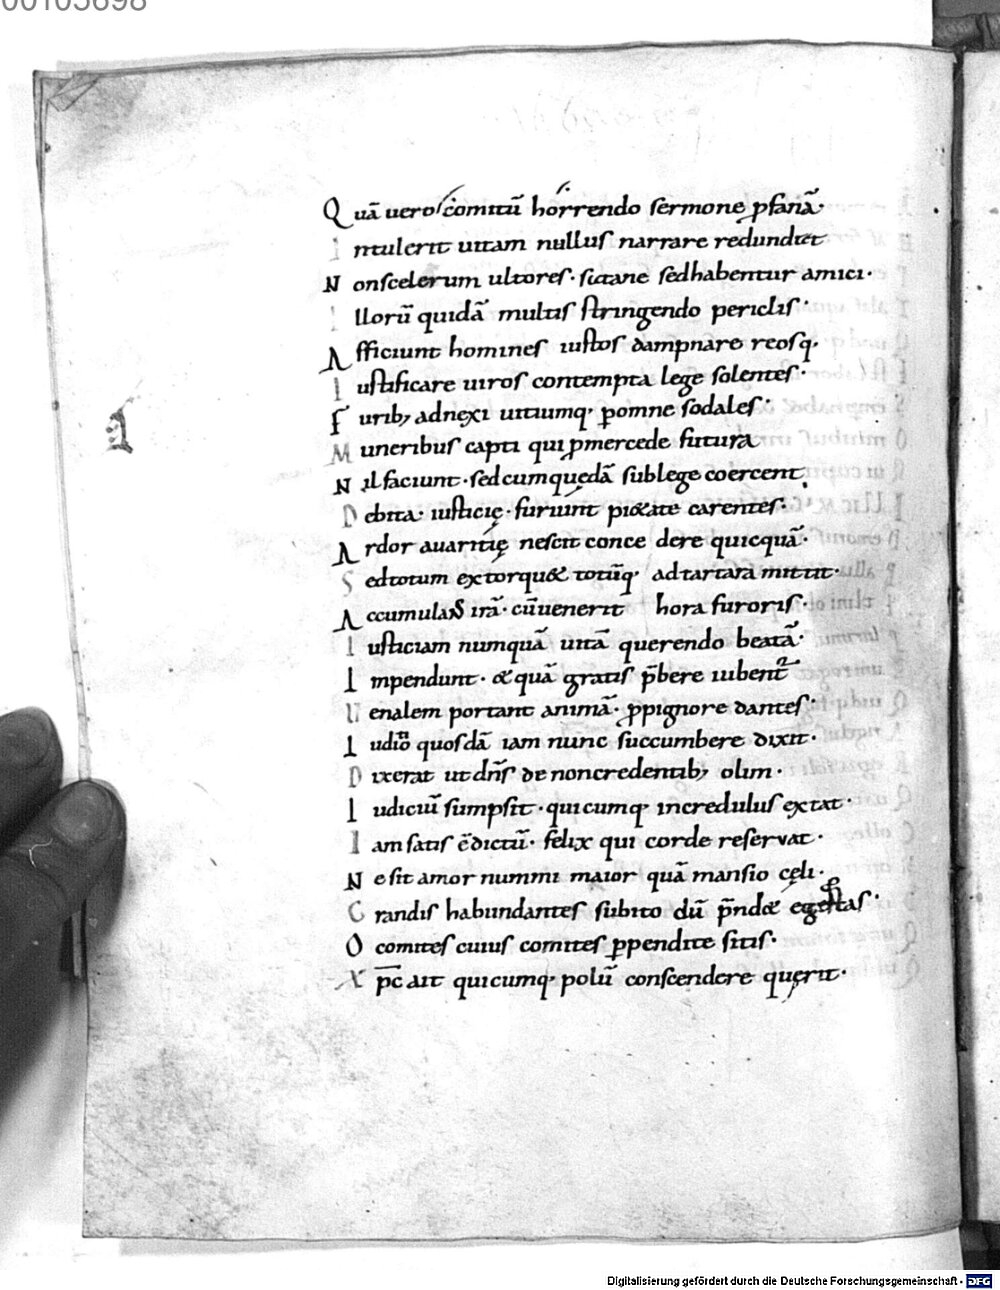 00103898
Quā uero comitū horrendo sermone ꝓfanā·
Intulerit uitam nullus narrare redundet
Non scelerum ultores· satane sed habentur amici·
Illorū quidā multis stringendo periclis·
Afficiunt homines iustos dampnare reosq·
Iustificare uiros contempta lege solentes·
Furib; adnexi uitiumq· ꝑ omne sodales·
Muneribus capti qui ꝓ mercede futura
Nil faciunt· sed cum quędā sub lege coercent
Debita· iusticię· furiunt pietate carentes·
Ardor auaritię nescit concedere quicquā·
Sed totum extorquet totūq· ad tartara mittit·
Accumulans irā· cū uenerit hora furoris·
Iusticiam numquā uitā querendo beatā·
Impendunt· & quā gratis p̄bere iubent᷑
Uenalem portant animā· ꝓ pignore dantes·
Iudiō quosdā iam nunc succumbere dixit·
Dixerat ut dn̄s de non credentib; olim·
Iudiciū sumpsit· quicumq· incredulus extat·
Iam satis ē dictū· felix qui corde reseruat·
Ne sit amor nummi maior quā mansio cęli·
Grandis habundantes subito dū p̄ndet egestas·
O comites cuius comites ꝑpendite sitis·
Xp̄c ait quicumq· polū conscendere querit·
Digitalisierung gefördert durch die Deutsche Forschungsgemeinschaft · DFG